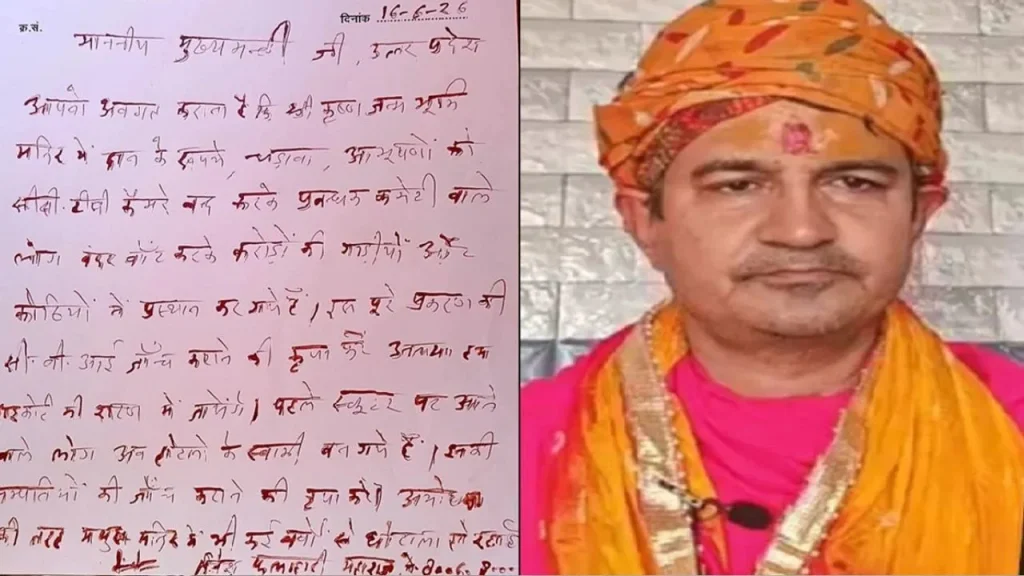 क्र.सं.
दिनांक 16-6-26
माननीय मुख्यमन्त्री जी, उत्तर प्रदेश
आपको अवगत कराना है कि श्री कृष्ण जन्म भूमि
मन्दिर में दान के रूपये, चढ़ावा, आभूषणों को
सीसी. टीवी कैमरे बन्द करके प्रबन्धक कमेटी वाले
लोग बंदर बाँट करके करोड़ों की गाड़ीयों और
कोठियों में प्रस्थान कर गये हैं। इस पूरे प्रकरण की
सी. बी. आई जाँच कराने की कृपा करें अन्यथा हम
हाइकोर्ट की शरण में जायेंगे। पहले स्कूटर पर आने
वाले लोग अब होटलों के स्वामी बन गये हैं। इनकी
सम्पत्तियों की जाँच कराने की कृपा करें। अयोध्या
की तरह मथुरा मन्दिर में भी कई वर्षों से घोटाला हो रहा है
दिनेश फलाहारी महाराज